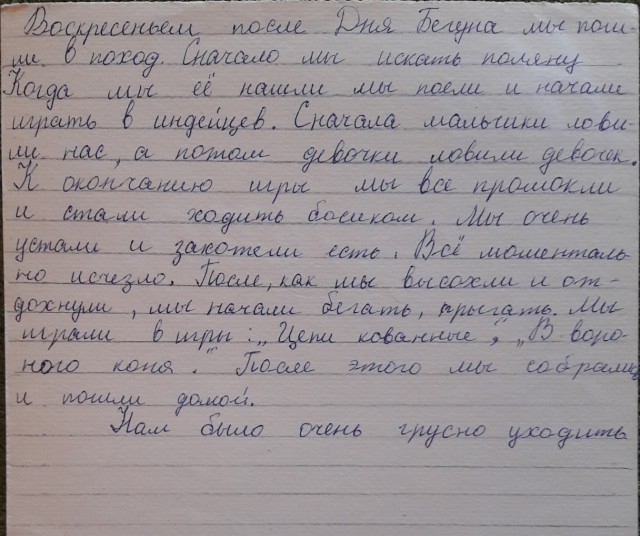 Воскресеньем после Дня Бегуна мы пош-
ли в поход. Сначало мы искать поляну
Когда мы её нашли мы поели и начали
играть в индейцев. Сначала мальчики лови-
ли нас, а потом девочки ловили девочек.
К окончанию игры мы все промокли
и стали ходить босиком. Мы очень
устали и захотели есть. Всё моменталь-
но исчезло. После, как мы высохли и от-
дохнули, мы начали бегать, прыгать. Мы
играли в игры: „Цепи кованные“, „В воро-
ного коня.“ После этого мы собрались
и пошли домой.
Нам было очень грусно уходить